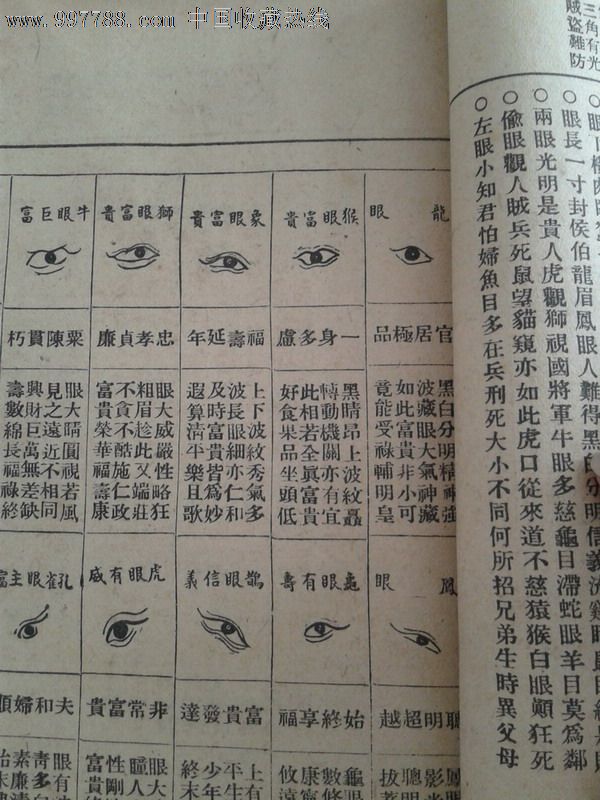 www.997788.com 中国收藏热线
三角有光
賊盜難防
眼長一寸封侯伯龍眉鳳眼人難得黑白分明信義流
○兩眼光明是貴人虎觀獅視國將軍牛眼多慈龜目滯蛇眼羊目莫為鄰
○偷眼觀人賊兵死鼠望貓窺亦如此虎口從來道不慈猿猴白眼顛狂死
○左眼小知君怕婦魚目多在兵刑死大小不同何所招兄弟生時異父母
龍眼
官居極品
黑白分明精神強
波藏眼大氣神藏
如此富貴非小可
竟能受祿輔明皇
猴眼富貴
一身多慮
黑睛昂上波紋矗
轉動機關亦有宜
此相若全眞富貴
好食果品坐頭低
象眼富貴
福壽延年
上下波紋秀氣多
波長眼細亦仁和
及時富貴皆為妙
遐算清平樂且歌
獅眼富貴
忠孝貞廉
眼大威嚴性略狂
粗眉趁此又端莊
不貪不酷施仁政
富貴榮華福壽康
牛眼巨富
粟陳貫朽
眼大睛圓視若風
見之遠近不相同
興財巨萬無差缺
壽數綿長福祿終
鳳眼
聰明超越
聰明
拔萃
龜眼有壽
始終享福
龜眼
數修
康寧
攸遠
鵲眼信義
富貴發達
上有
平生
少年
終末
虎眼有威
非常富貴
眼大
性剛
富貴
孔雀眼主富
夫和婦順
眼有
青多
素廉
始末